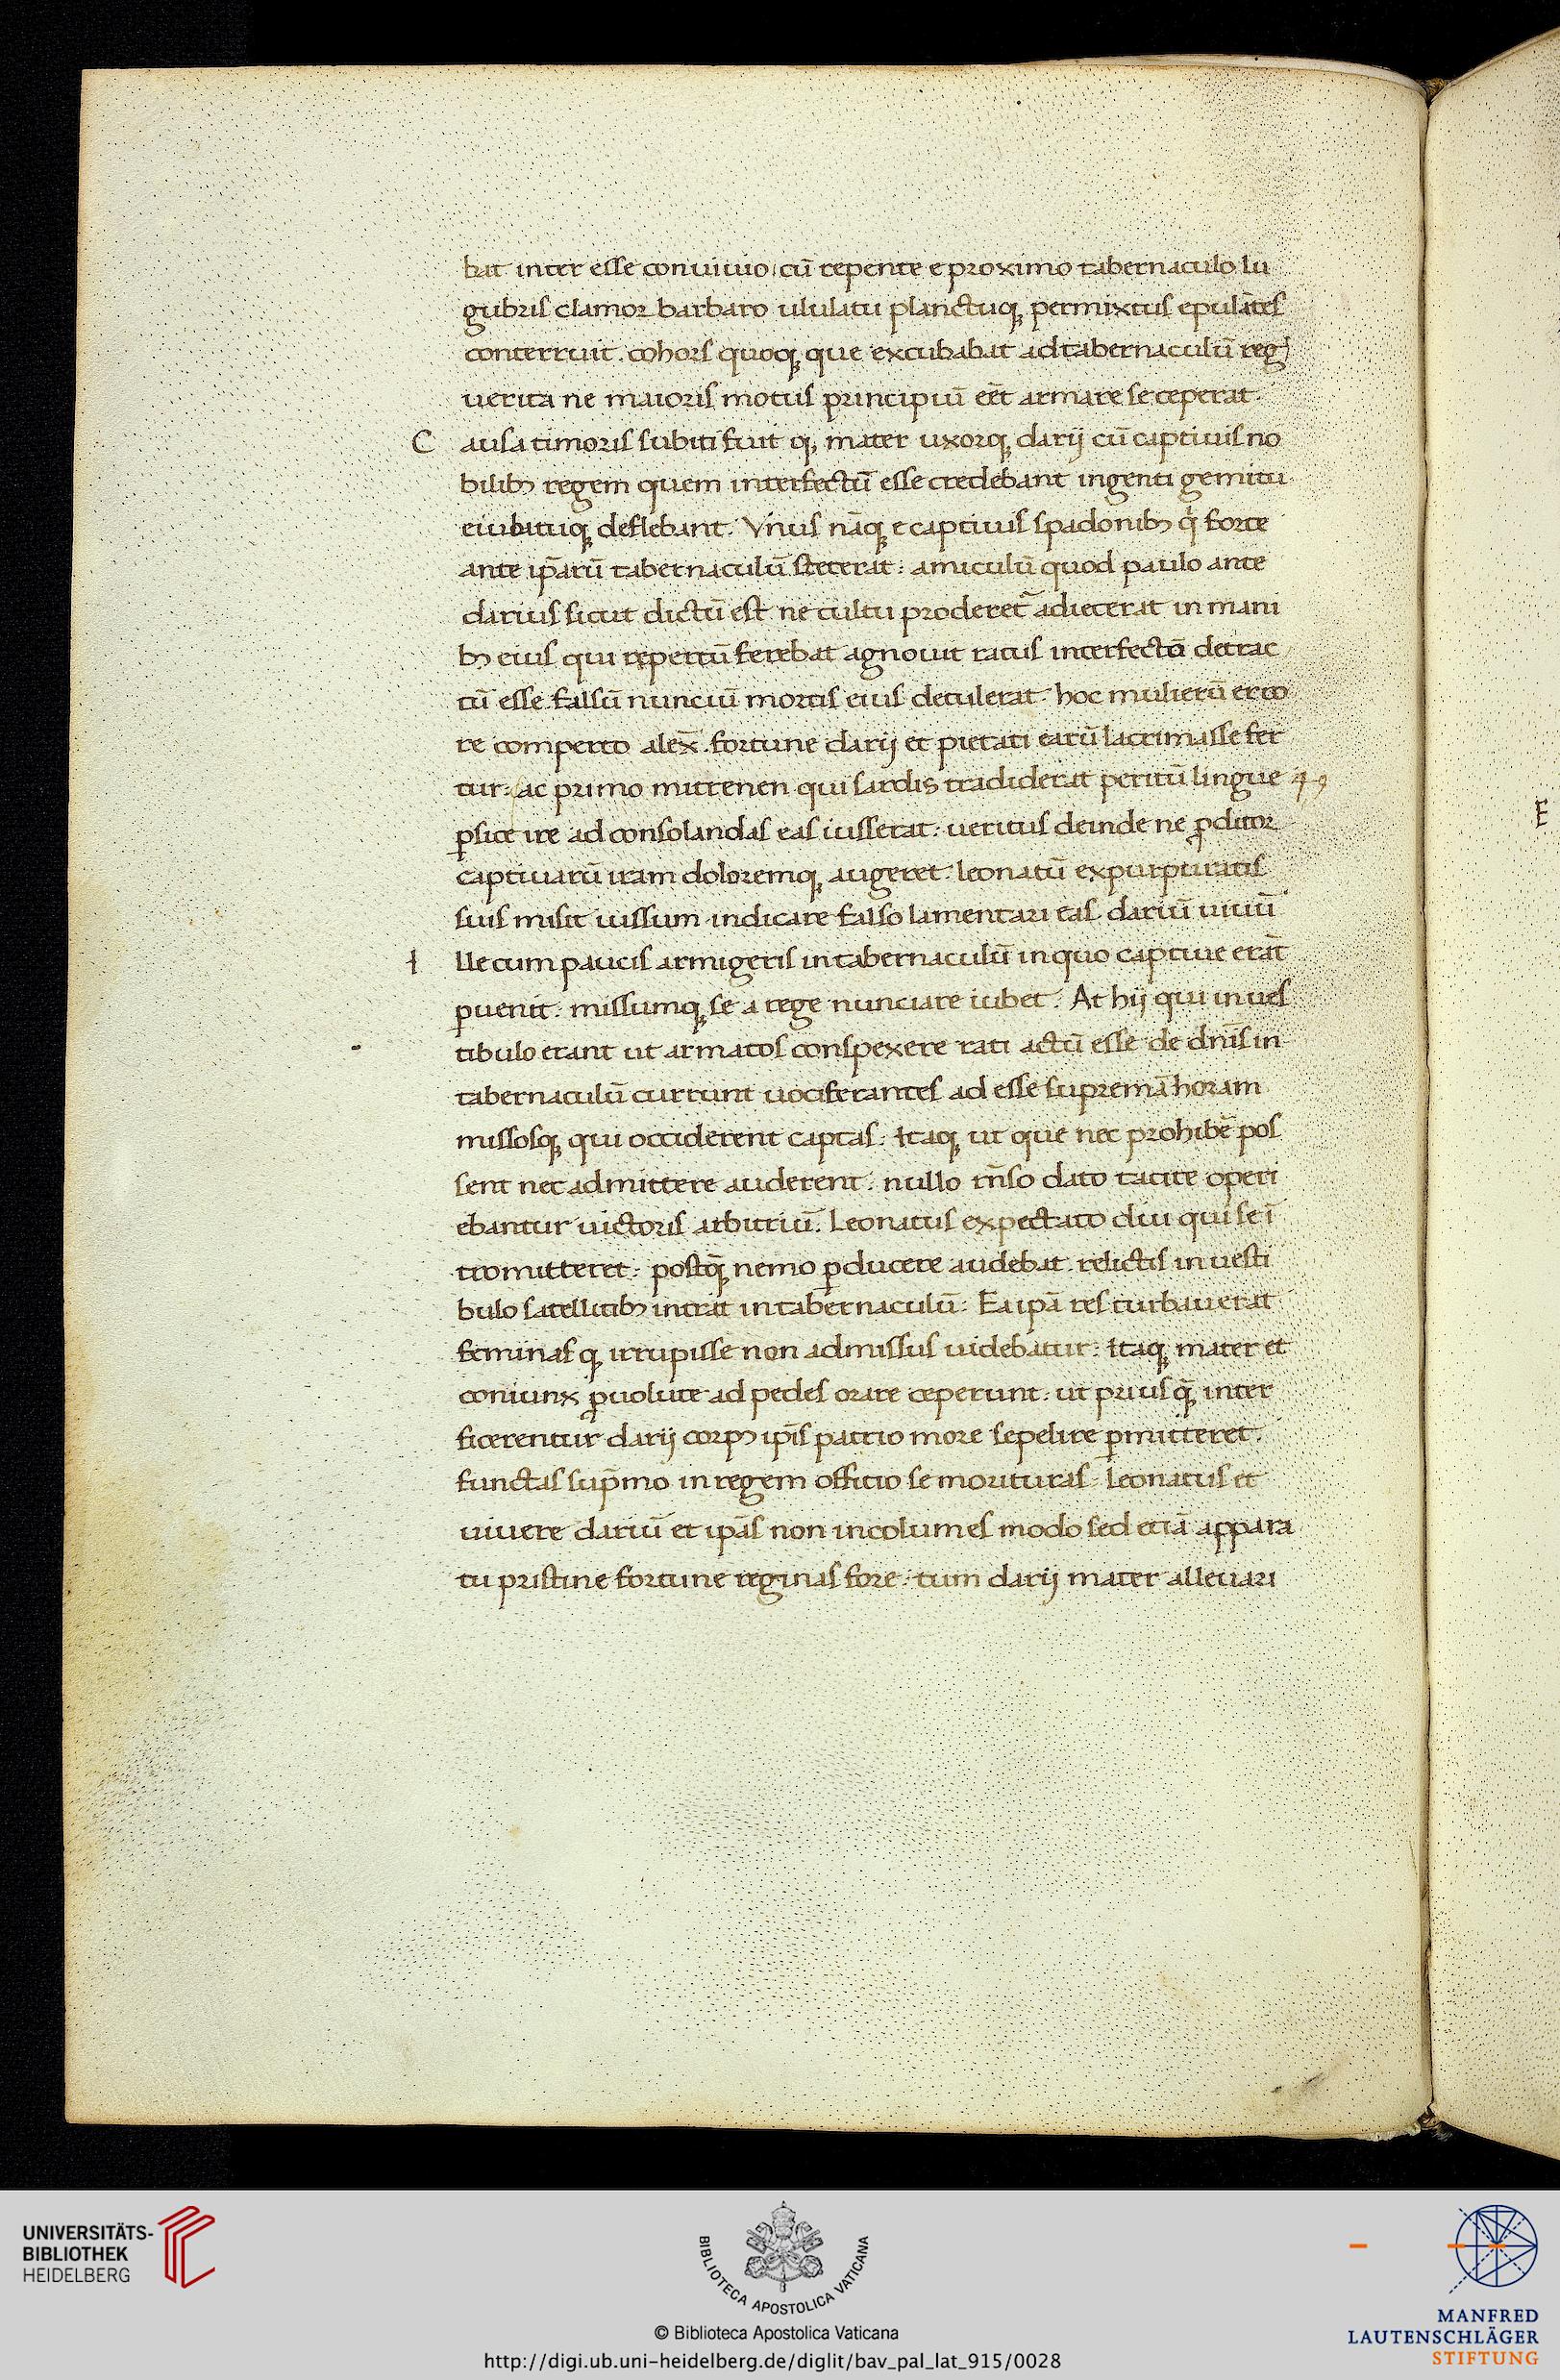 bat inter esse conuiuio cū repente e proximo tabernaculo lu
gubris clamor barbaro ululatu planctuq; permixtus epulātes
conterruit. cohors quoq; que excubabat ad tabernaculū reg̃
uerita ne maioris motus principiū eēt armare se ceperat.
C ausa timoris subiti fuit q; mater uxorq; darij cū captiuis no
bilib; regem quem interfectū esse credebant ingenti gemitu
eiubituq; deflebant. Vnus nāq; e captiuis spadonib; q̇ forte
ante ip̄arū tabernaculū steterat: amiculū quod paulo ante
darius sicut dictū est ne cultu proderet᷑ adiecerat in mani
b; eius qui repertū ferebat agnouit ratus interfecto detrac
tū esse falsū nunciū mortis eius detulerat. hoc mulierū erro
re comperto alex̄. fortune darij et pietati earū lacrimasse fer
tur: ac primo mittenen qui sardis tradiderat peritū lingue
ꝑsice ire ad consolandas eas iusserat: ueritus deinde ne ꝓditor
captiuarū iram doloremq; augeret. leonatū ex purpuratis
suis misit iussum indicare falso lamentari eas dariū uiuū
I lle cum paucis armigeris in tabernaculū in quo captiue erāt
ꝑuenit: missumq; se a rege nunciare iubet. At hij qui in ues
tibulo erant ut armatos conspexere rati actū esse de dn̄is in
tabernaculū currunt uociferantes ad esse supremā horam
missosq; qui occiderent captas. Itaq; ut que nec prohibē pos
sent nec admittere auderent: nullo rn̄so dato tacite operi
ebantur uictoris arbitriū. Leonatus expectato diu qui se ī
tromitteret: postq̄; nemo ꝑducere audebat. relictis in uesti
bulo satellitib; intrat in tabernaculū: Ea ipā res turbauerat
feminas q; irrupisse non admissus uidebatur: Itaq; mater et
coniunx ꝓuolute ad pedes orare ceperunt: ut prius q̄; inter
ficerentur darij corp; ip̄is patrio more sepelire ꝑmitteret.
functas sup̄mo in regem officio se morituras. Leonatus et
uiuere dariū et ipās non incolumes modo sed etiā appara
tu pristine fortune reginas fore: tum darij mater alleuari
E
UNIVERSITÄTS-
BIBLIOTHEK
HEIDELBERG
BIBLIOTECA APOSTOLICA VATICANA
© Biblioteca Apostolica Vaticana
http://digi.ub.uni-heidelberg.de/diglit/bav_pal_lat_915/0028
MANFRED
LAUTENSCHLÄGER
STIFTUNG